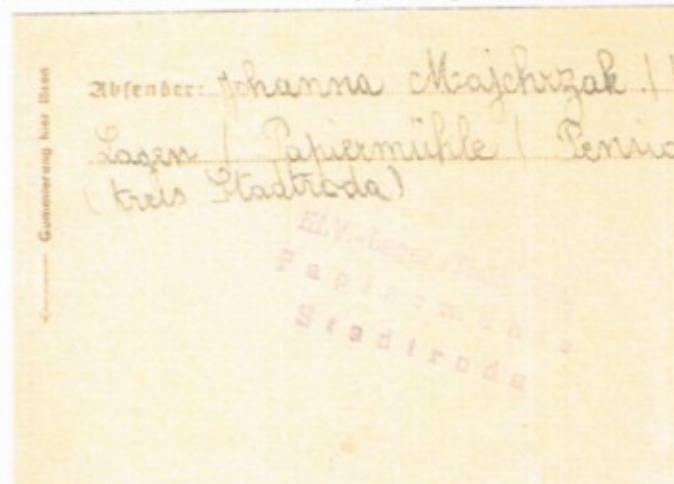 Gummierung hier lösen
Absender: Johanna Majchrzak
Lagen / Papiermühle /
(Kreis Stadtroda)
KLV.-Lager
Papiermühle
Stadtroda